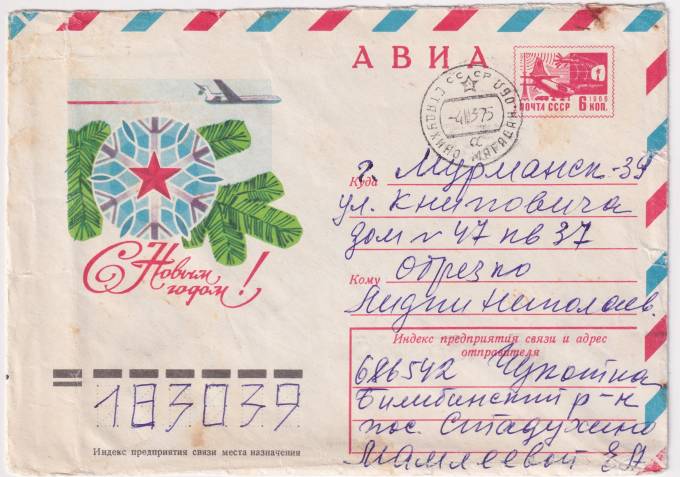 АВИА
ПОЧТА СССР 1966 6 КОП.
СССР
СТАДУХИНО МАГАДАН. ОБЛ
-4 1275
а
С Новым годом!
Куда г. Мурманск-39
ул. Книповича
дом № 47 кв 37
Кому Обрезко
Лидии Николаев.
Индекс предприятия связи и адрес отправителя
686542 Чукотка
Билибинский р-н
пос. Стадухино
Мамлеевой Е.А
183039
Индекс предприятия связи места назначения